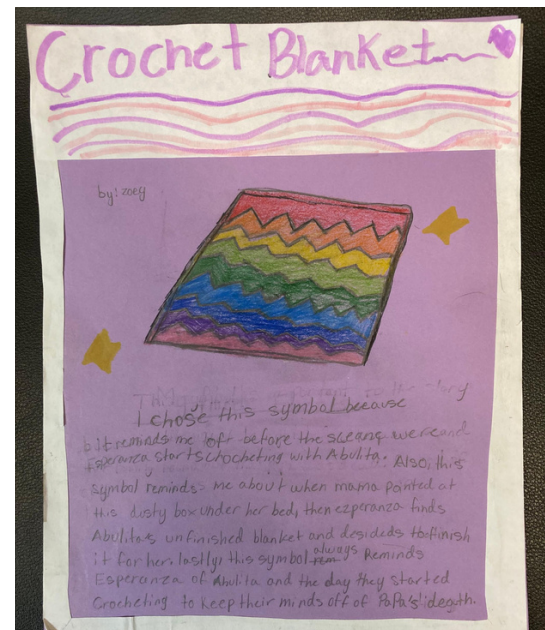 Crochet Blanket
by: zoey
I chose this symbol because
it reminds me of before the
Esperanza starts chocheting with Abulita. Also, this
symbol reminds me about when mama pointed at
this dusty box under her bed, then ezperanza finds
Abulita's unfinished blanket and desideds to finish
it for her. lastly, this symbol always Reminds
Esperanza of Abulita and the day they started
Crocheting to keep their minds off of PaPa's death.